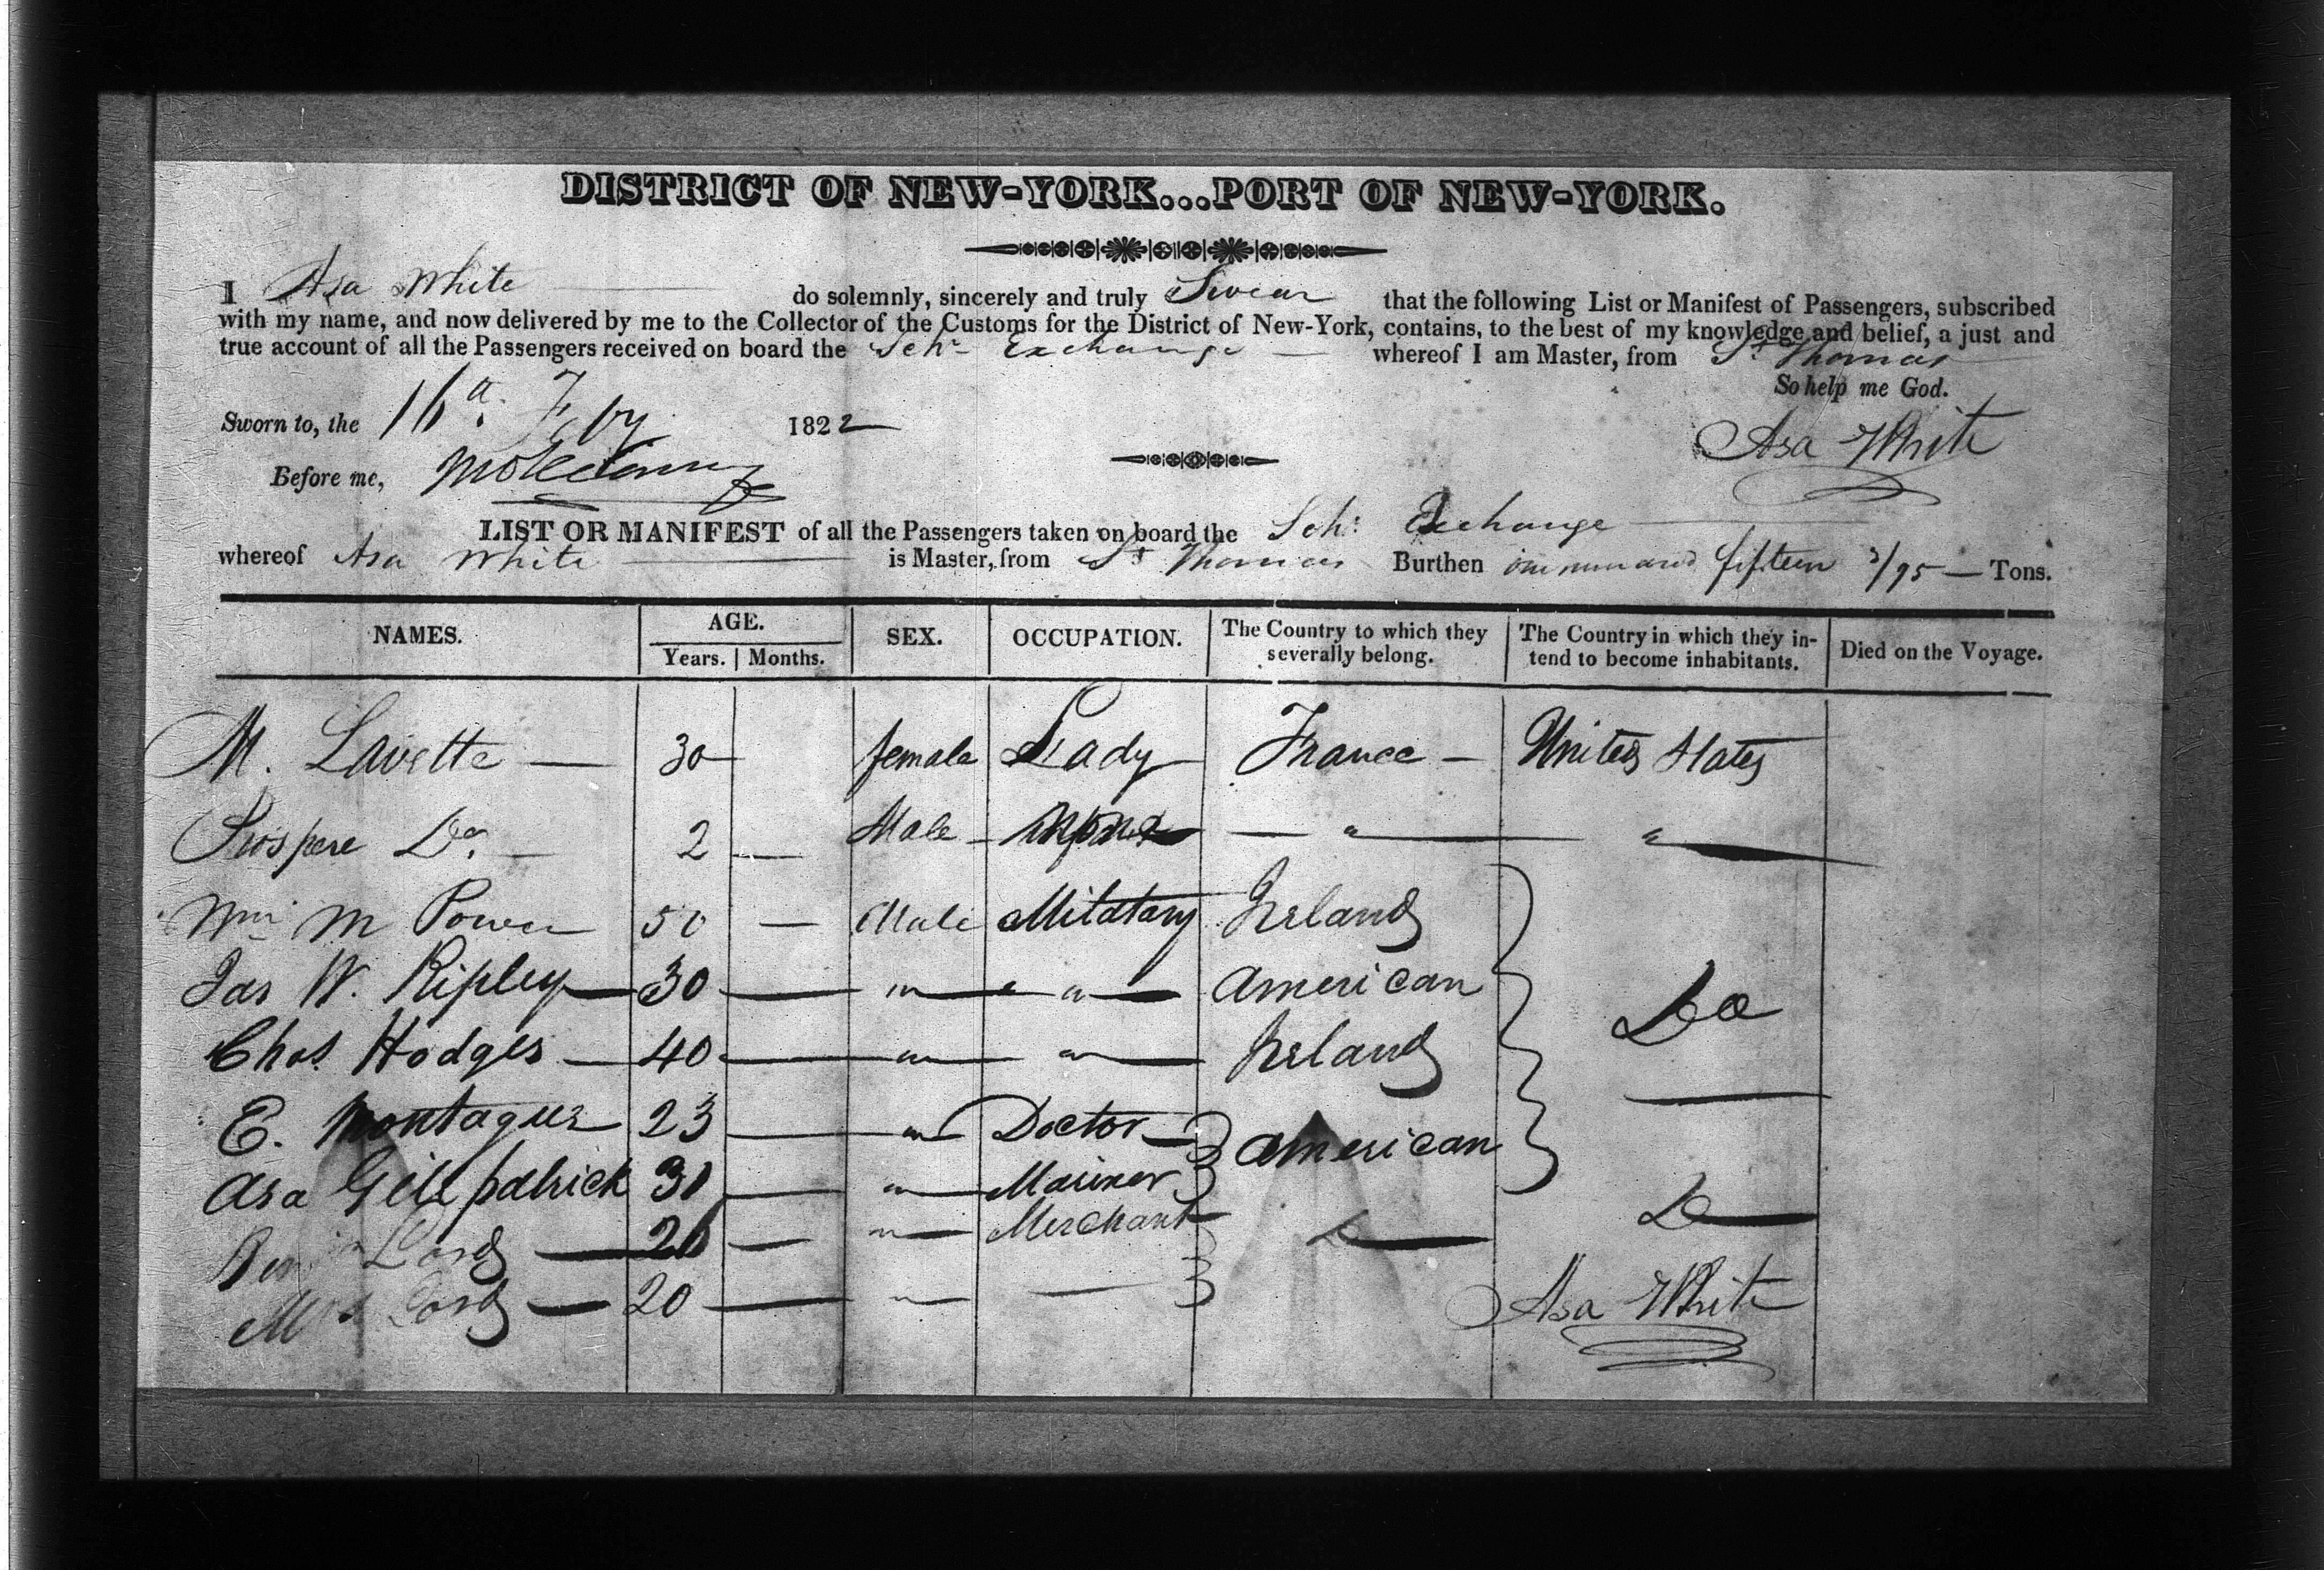 DISTRICT OF NEW-YORK...PORT OF NEW-YORK.
I Asa White do solemnly, sincerely and truly Swear that the following List or Manifest of Passengers, subscribed
with my name, and now delivered by me to the Collector of the Customs for the District of New-York, contains, to the best of my knowledge and belief, a just and
true account of all the Passengers received on board the Schr Exchange whereof I am Master, from St Thomas
So help me God.
Sworn to, the 16th Feby 1822
Asa White
Before me,
LIST OR MANIFEST of all the Passengers taken on board the Schr Exchange
whereof Asa White is Master, from St Thomas Burthen fifteen 3/95 Tons.
NAMES. AGE. SEX. OCCUPATION. The Country to which they severally belong. The Country in which they intend to become inhabitants. Died on the Voyage.
Years. Months.
M. Lavette — 30 female Lady France — United States
Prospere Do. — 2 — Male — " "
Wm M Power 50 — Male Militany Ireland
Jas W. Ripley — 30 — " " American Do
Chas. Hodges — 40 — " " Ireland
E. Montague 23 — " Doctor American
Asa Gillpatrick 31 — " Mariner
Lord — 26 — " Merchant Do Do
Mrs Lord — 20 — " —
Asa White